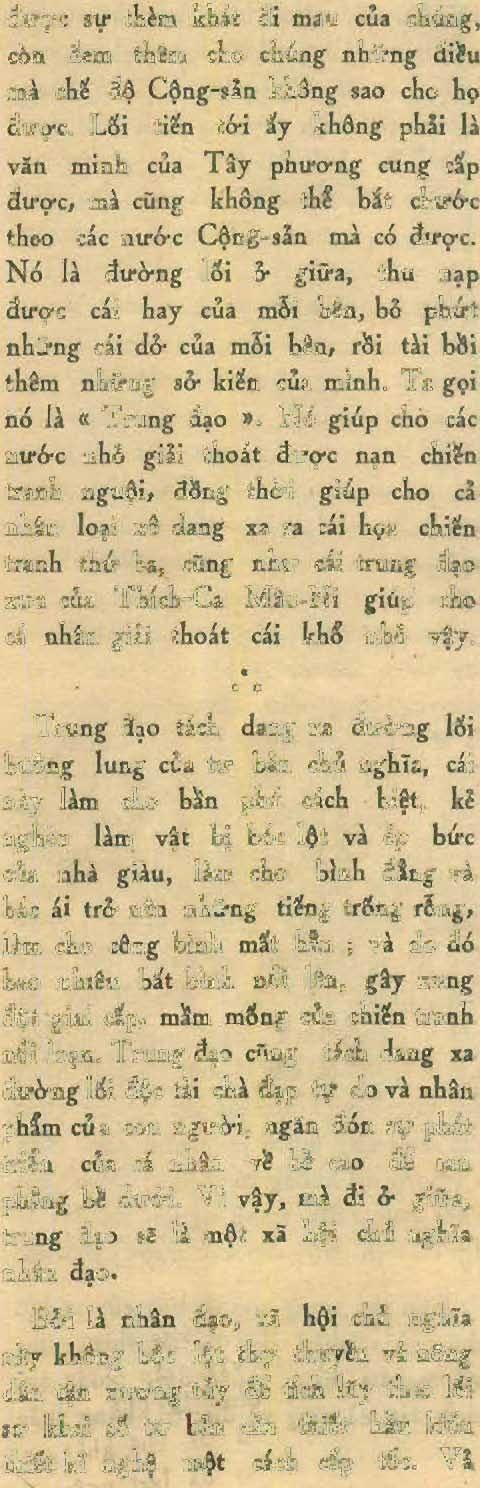 được sự thèm khát đi mau của chúng,
còn đem thêm cho chúng những điều
mà chế độ Cộng-sản không sao cho họ
được. Lối tiến tới ấy không phải là
văn minh của Tây phương cung cấp
được, mà cũng không thể bắt chước
theo các nước Cộng-sản mà có được.
Nó là đường lối ở giữa, thu nạp
được cái hay của mỗi bên, bỏ phứt
những cái dở của mỗi bên, rồi tài bồi
thêm những sở kiến của mình. Ta gọi
nó là « Trung đạo ». Nó giúp cho các
nước nhỏ giải thoát được nạn chiến
tranh nguội, đồng thời giúp cho cả
nhân loại xê dang xa ra cái họa chiến
tranh thứ ba, cũng như cái trung đạo
xưa của Thích-Ca Mâu-Ni giúp cho
cá nhân giải thoát cái khổ nhỏ vậy.
Trung đạo tách dang ra đường lối
buông lung của tư bản chủ nghĩa, cái
này làm cho bần phú cách biệt, kẻ
nghèo làm vật bị bóc lột và áp bức
của nhà giàu, làm cho bình đẳng và
bác ái trở nên những tiếng trống rỗng,
làm cho công bình mất hẳn ; và do đó
bao nhiêu bất bình nổi lên, gây xung
đột giai cấp, mầm mống của chiến tranh
nổi loạn. Trung đạo cũng tách dang xa
đường lối độc tài chà đạp tự do và nhân
phẩm của con người, ngăn đón sự phát
triển của cá nhân về bề cao để san
phẳng bề dưới. Vì vậy, mà đi ở giữa,
trung đạo sẽ là một xã hội chủ nghĩa
nhân đạo.
Bởi là nhân đạo, xã hội chủ nghĩa
này không bóc lột thợ thuyền và nông
dân tận xương tủy để tích lũy theo lối
sơ khai số tư bản cần thiết hầu kiến
thiết kĩ nghệ một cách cấp tốc. Vả